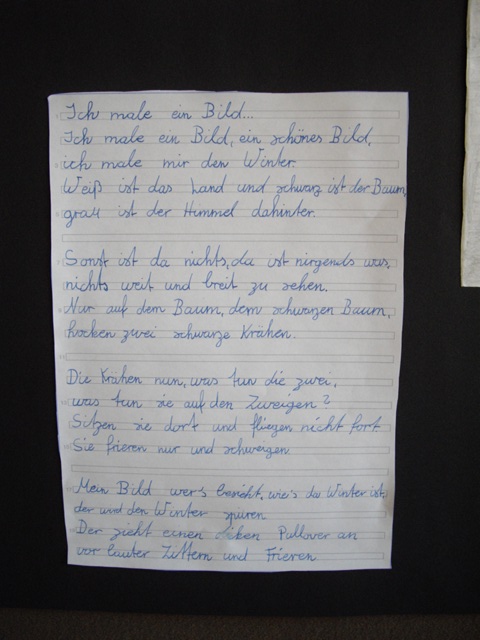 Ich male ein Bild...
Ich male ein Bild, ein schönes Bild,
ich male mir den Winter.
Weiß ist das Land und schwarz ist der Baum,
grau ist der Himmel dahinter.
Sonst ist da nichts, da ist nirgends was,
nichts weit und breit zu sehen.
Nur auf dem Baum, dem schwarzen Baum,
hocken zwei schwarze Krähen.
Die Krähen nun, was tun die zwei,
was tun sie auf den Zweigen?
Sitzen sie dort und fliegen nicht fort
Sie frieren nur und schweigen
Mein Bild wer's besieht, wie's da Winter ist,
der wird den Winter spüren
Der zieht einen dicken Pullover an
vor lauter Zittern und Frieren